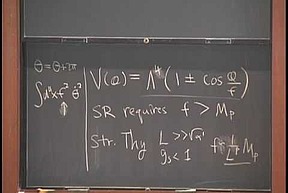 θ = θ + 2π
∫d⁴x f² θ̇²
V(φ) = Λ⁴ (1 ± cos φ/f)
SR requires f > Mp
Str. Thy L >> √α'
gs < 1
Mp